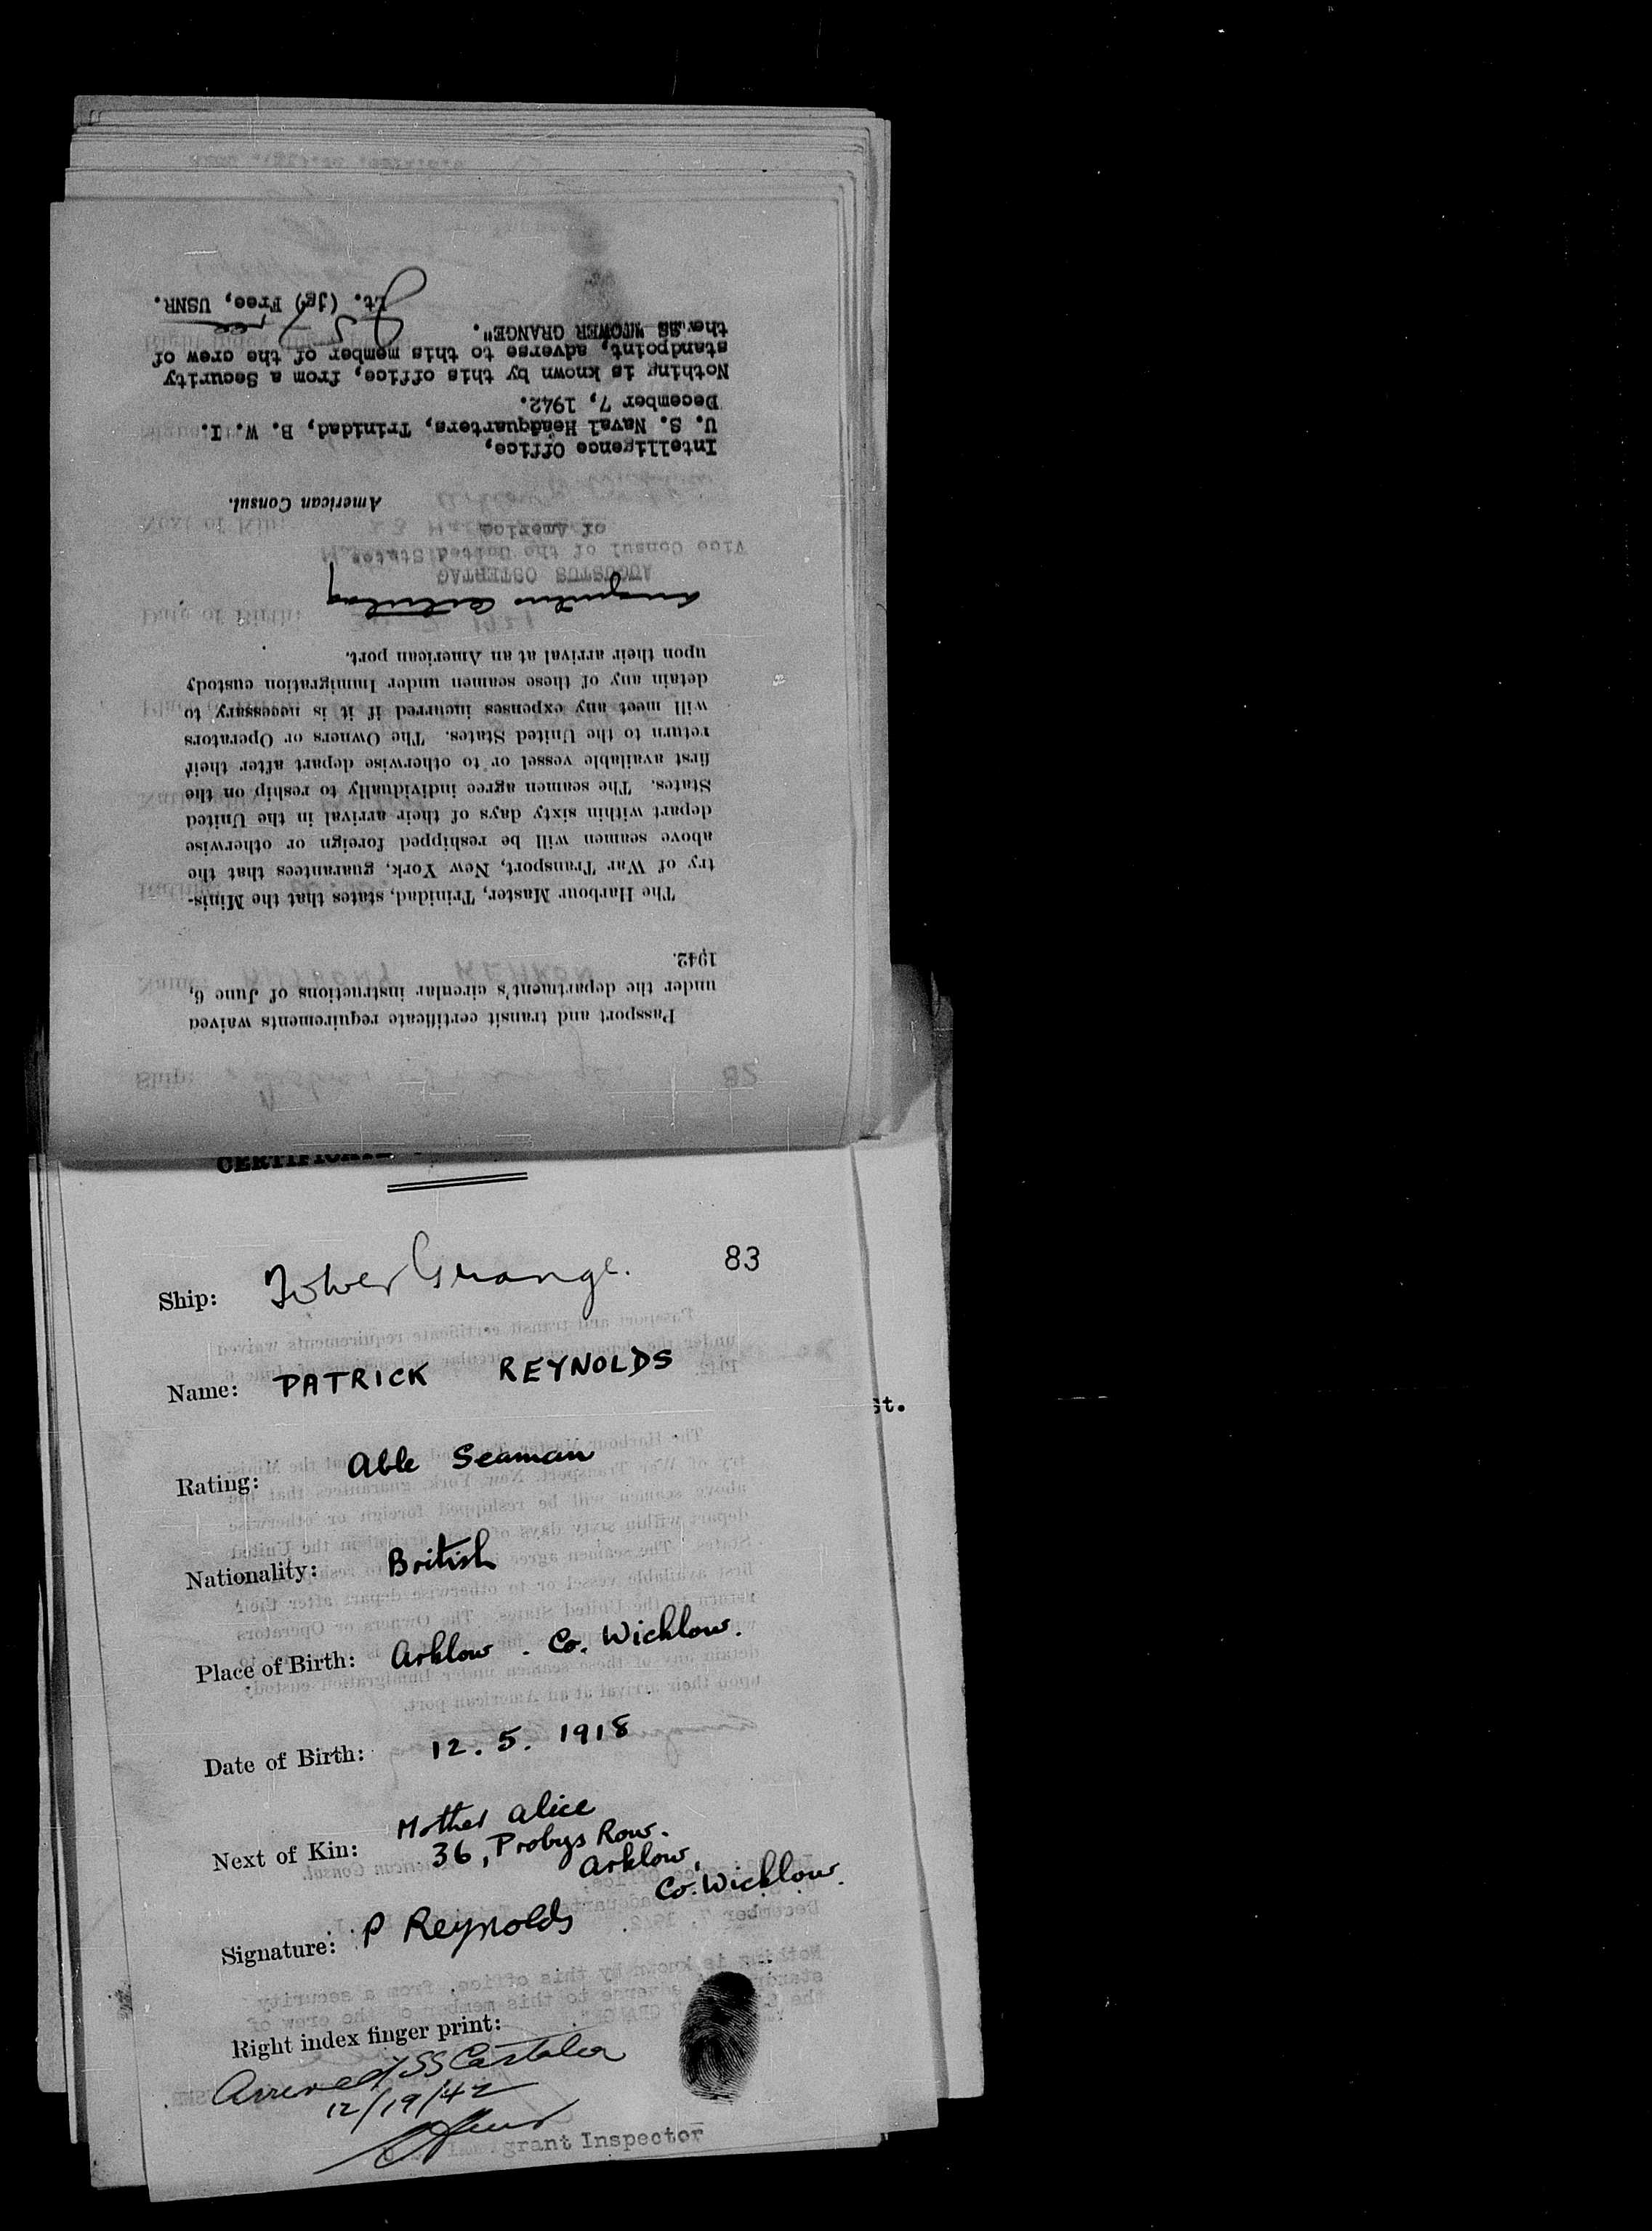 Passport and transit certificate requirements waived
under the department's circular instructions of June 6,
1942.
The Harbour Master, Trinidad, states that the Minis-
try of War Transport, New York, guarantees that the
above seamen will be reshipped foreign or otherwise
depart within sixty days of their arrival in the United
States. The seamen agree individually to reship on the
first available vessel or to otherwise depart after their
return to the United States. The Owners or Operators
will meet any expenses incurred if it is necessary to
detain any of these seamen under Immigration custody
upon their arrival at an American port.
AUGUSTUS OSTERTAG
Vice Consul of the United States
of America
American Consul.
Intelligence Office,
U. S. Naval Headquarters, Trinidad, B. W. I.
December 7, 1942.
Nothing is known by this office, from a Security
standpoint, adverse to this member of the crew of
the SS "TOWER GRANGE".
Lt. (jg) Free, USNR.
CERTIFICATE
83
Ship: Tower Grange.
Name: PATRICK REYNOLDS
st.
Rating: Able Seaman
Nationality: British
Place of Birth: Arklow. Co. Wicklow.
Date of Birth: 12. 5. 1918
Next of Kin: Mother Alice
36, Probys Row.
Arklow,
Co. Wicklow.
Signature: P Reynolds
Right index finger print:
Arrived SS Castalia
12/19/42
Immigrant Inspector